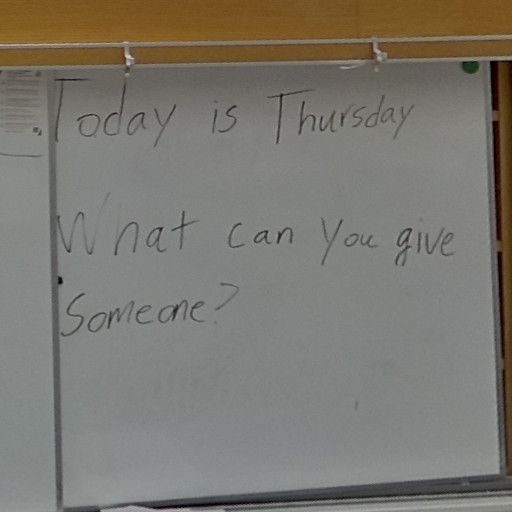 Today is Thursday
What can you give
Someone?